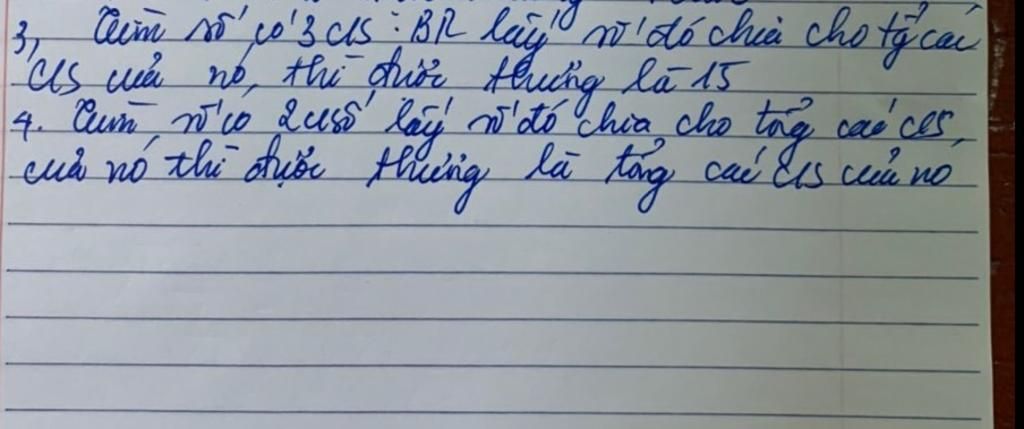 3, Tìm số có 3 CS : BR lấy số đó chia cho tổg các
CS của nó, thì được thương là 15
4. Tìm số có 2 c số lấy số đó chia cho tổng các CS
của nó thì được thương là tổng các CS của nó